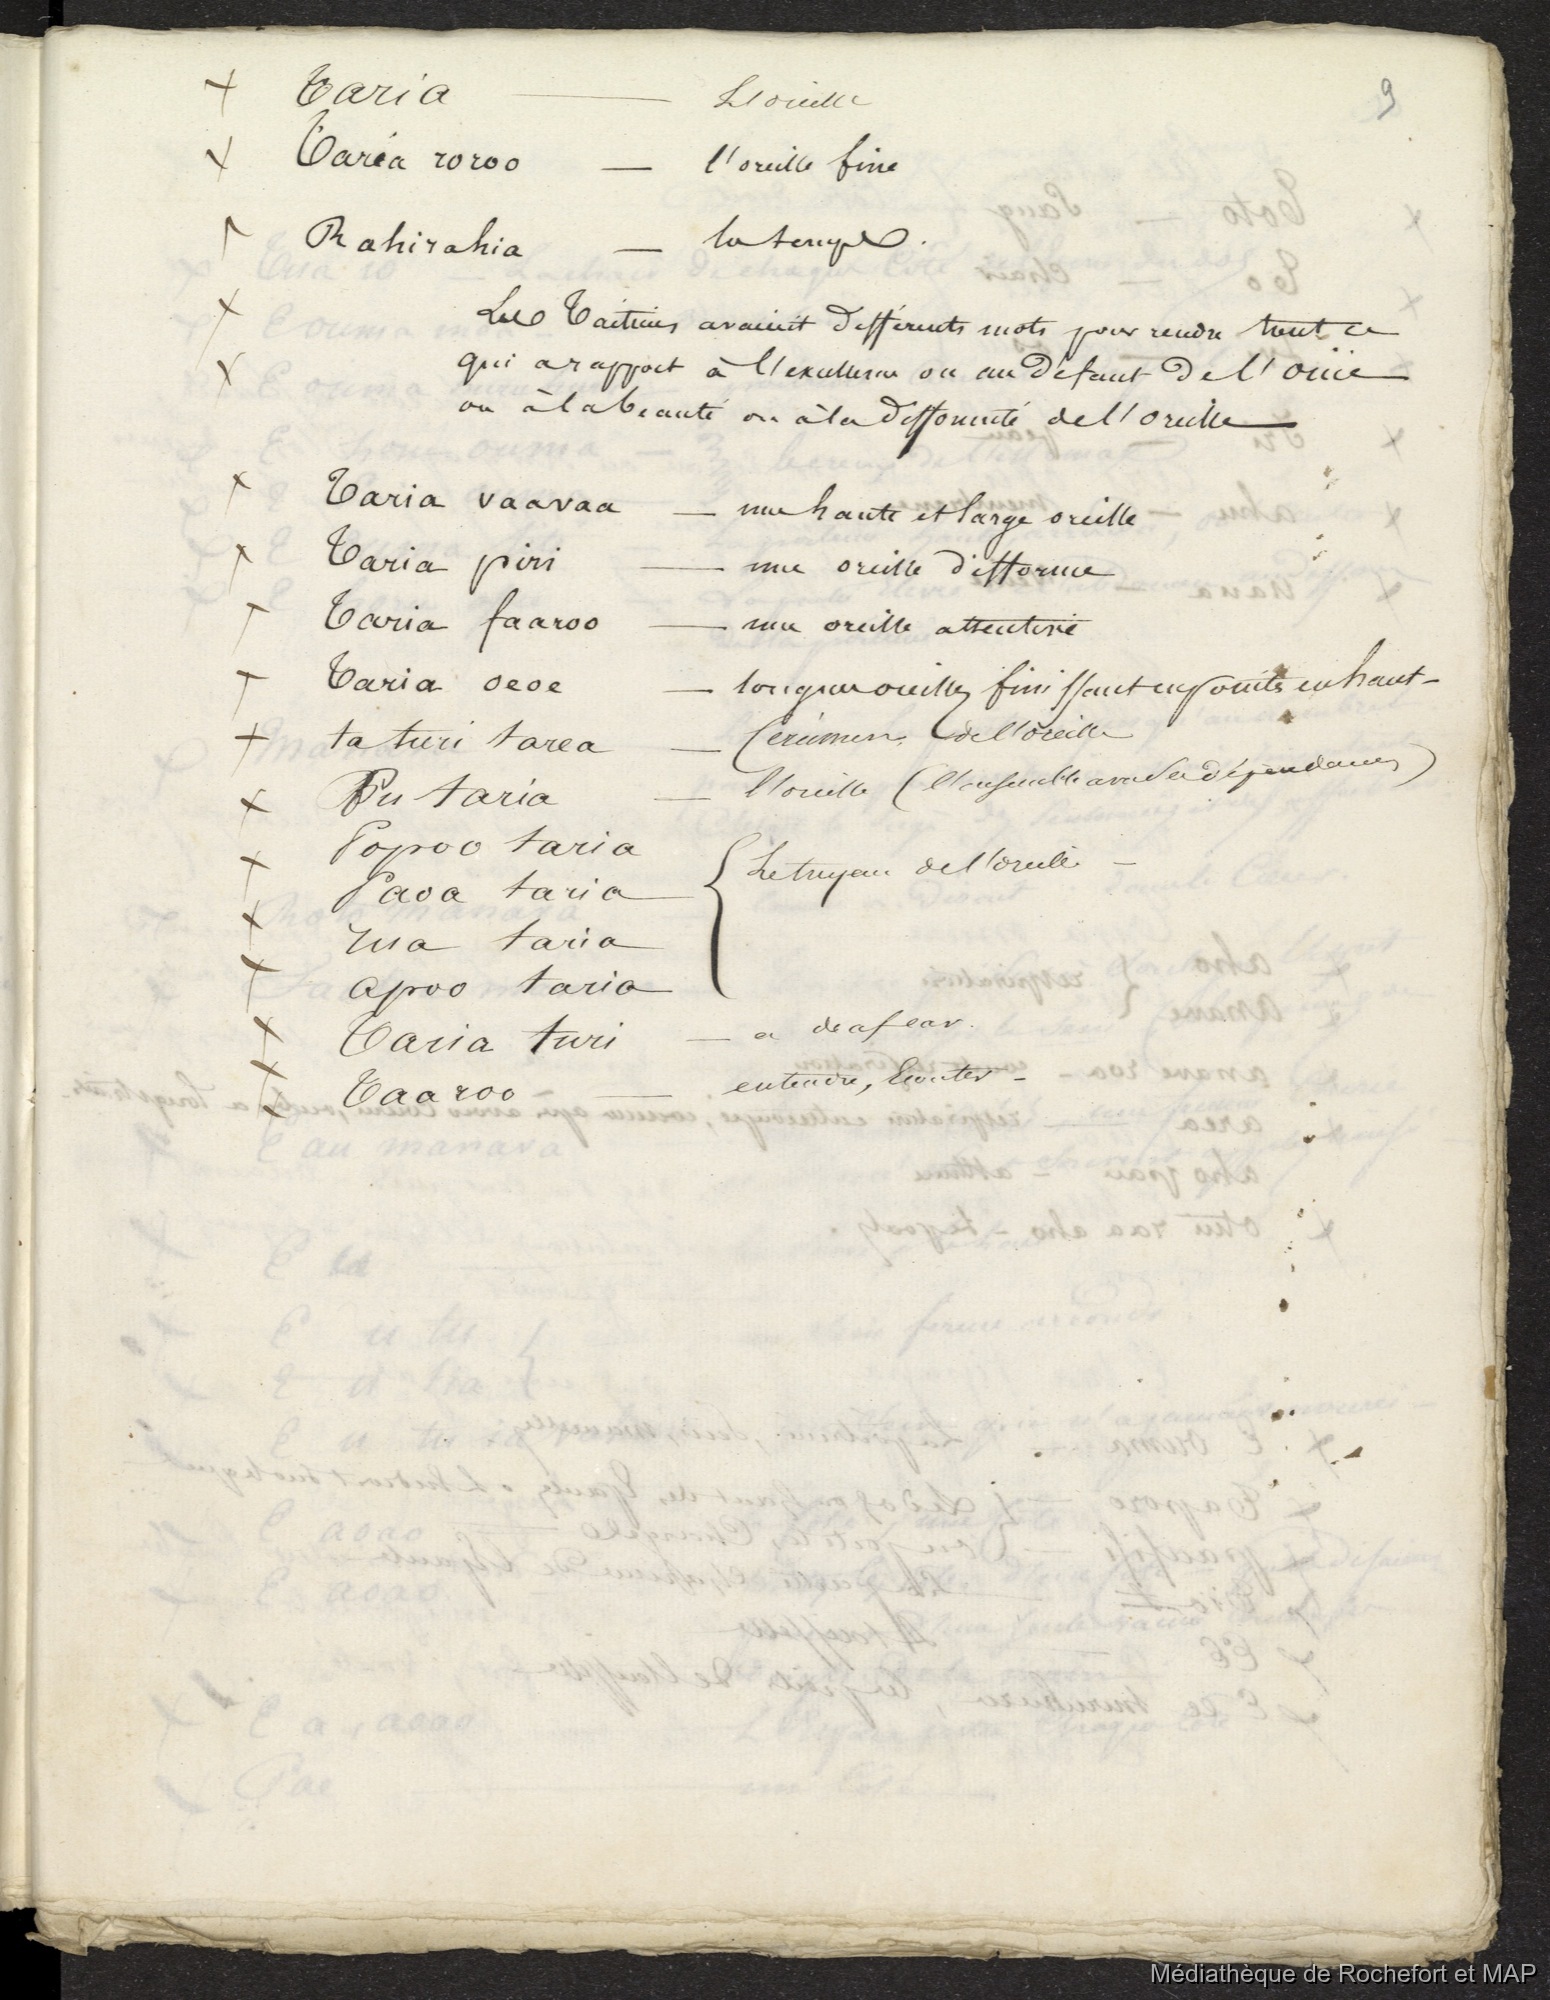 9
Taria — L'oreille
Taria roroo — l'oreille fine
Rahirahia — la tempe.
Les Taïtiens avaient différents mots pour rendre tout ce
qui a rapport à l'excellence ou au défaut de l'ouïe
ou à la beauté ou à la difformité de l'oreille
Taria vaavaa — une haute et large oreille
Taria piri — une oreille difforme
Taria faaroo — une oreille attentive
Taria oeoe — longue oreille, finissant en pointe en haut -
ta turi tarea — Cérumen de l'oreille
Pu taria — l'oreille (l'ensemble avec ses dépendances)
Popoo taria
Paoa taria { Le tuyau de l'oreille -
rua taria
apoo taria
Taria turi — a deaf ear.
Taaroo — entendre, Ecouter -
Médiathèque de Rochefort et MAP